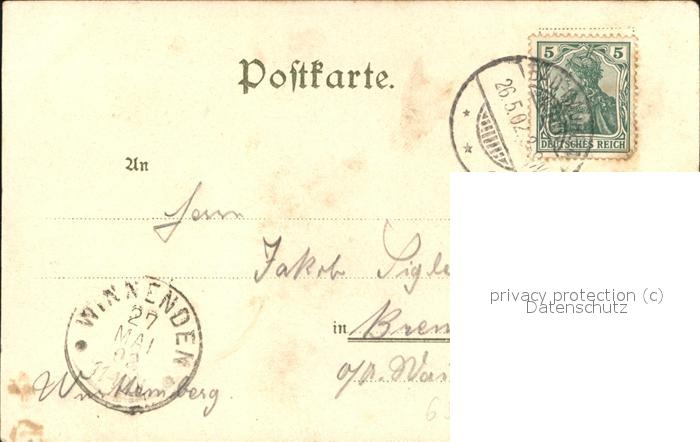 Postkarte.
5 5
DEUTSCHES REICH
26.5.02.
An
Herrn
Jakob Sigle
privacy protection (c)
Datenschutz
in Brem
WINNENDEN
27
MAI
02
o/A. Wai
Württemberg.